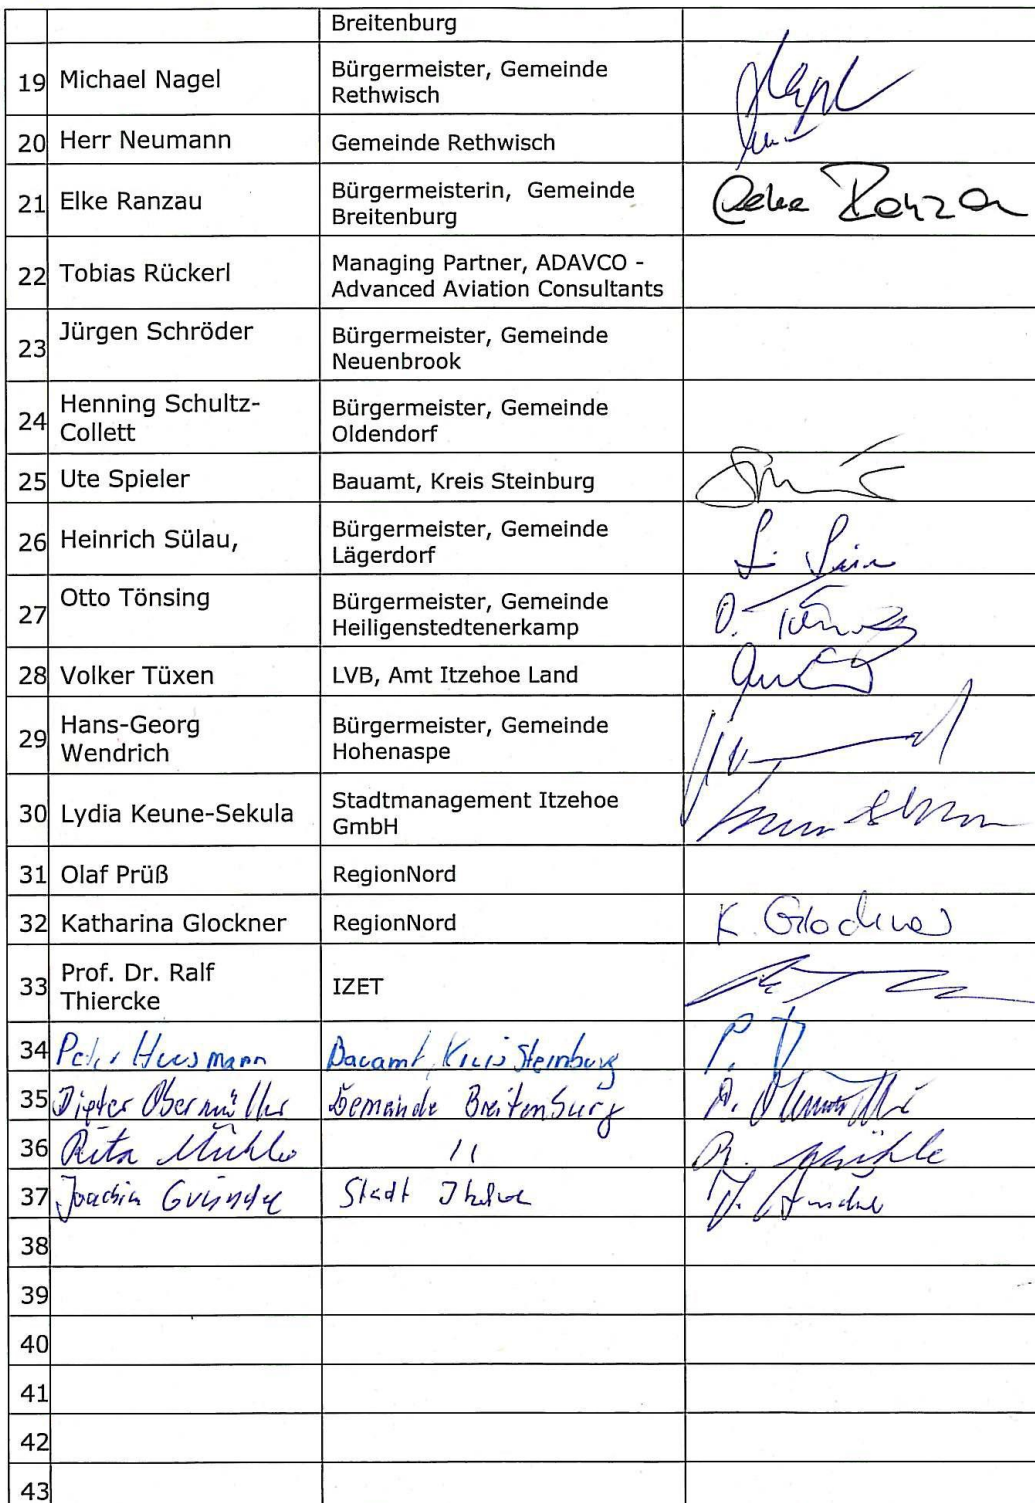 Breitenburg
19 Michael Nagel Bürgermeister, Gemeinde
Rethwisch
20 Herr Neumann Gemeinde Rethwisch
21 Elke Ranzau Bürgermeisterin, Gemeinde
Breitenburg
22 Tobias Rückerl Managing Partner, ADAVCO -
Advanced Aviation Consultants
23 Jürgen Schröder Bürgermeister, Gemeinde
Neuenbrook
24 Henning Schultz-
Collett
Bürgermeister, Gemeinde
Oldendorf
25 Ute Spieler Bauamt, Kreis Steinburg
26 Heinrich Sülau, Bürgermeister, Gemeinde
Lägerdorf
27 Otto Tönsing Bürgermeister, Gemeinde
Heiligenstedtenerkamp
28 Volker Tüxen LVB, Amt Itzehoe Land
29 Hans-Georg
Wendrich
Bürgermeister, Gemeinde
Hohenaspe
30 Lydia Keune-Sekula Stadtmanagement Itzehoe
GmbH
31 Olaf Prüß RegionNord
32 Katharina Glockner RegionNord K. Glockner
33 Prof. Dr. Ralf
Thiercke
IZET
34 Peter Huusmann Bauamt, Kreis Steinburg
35 Dieter Obermüller Gemeinde Breitenburg
36 Rita Mühle 11 R. Mühle
37 Joachim Stadt Itzehoe
38
39
40
41
42
43